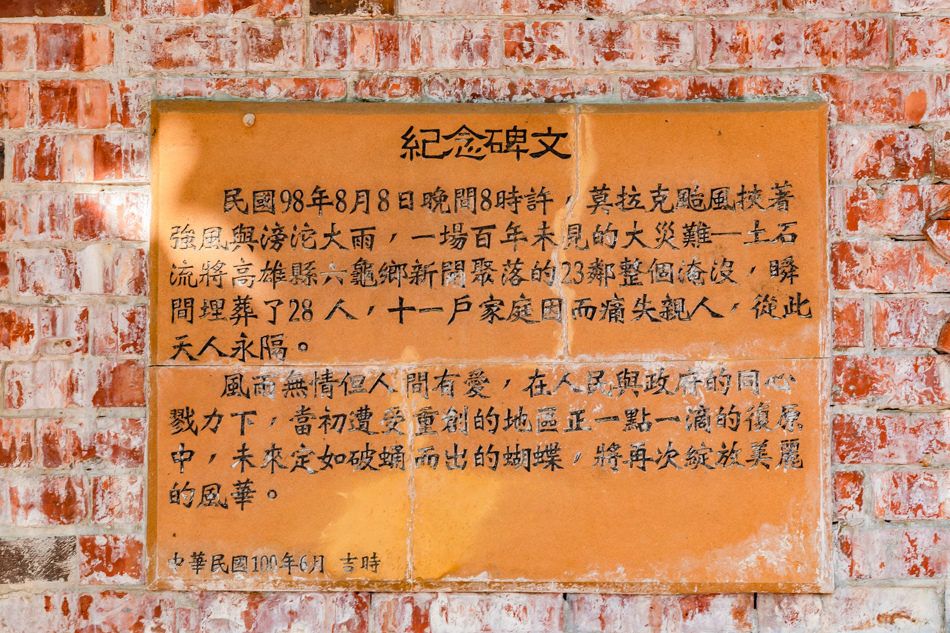 紀念碑文
民國98年8月8日晚間8時許，莫拉克颱風挾著
強風與滂沱大雨，一場百年未見的大災難─土石
流將高雄縣六龜鄉新開聚落的23鄰整個淹沒，瞬
間埋葬了28人，十一戶家庭因而痛失親人，從此
天人永隔。
風雨無情但人間有愛，在人民與政府的同心
戮力下，當初遭受重創的地區正一點一滴的復原
中，未來定如破蛹而出的蝴蝶，將再次綻放美麗
的風華。
中華民國100年6月 吉時